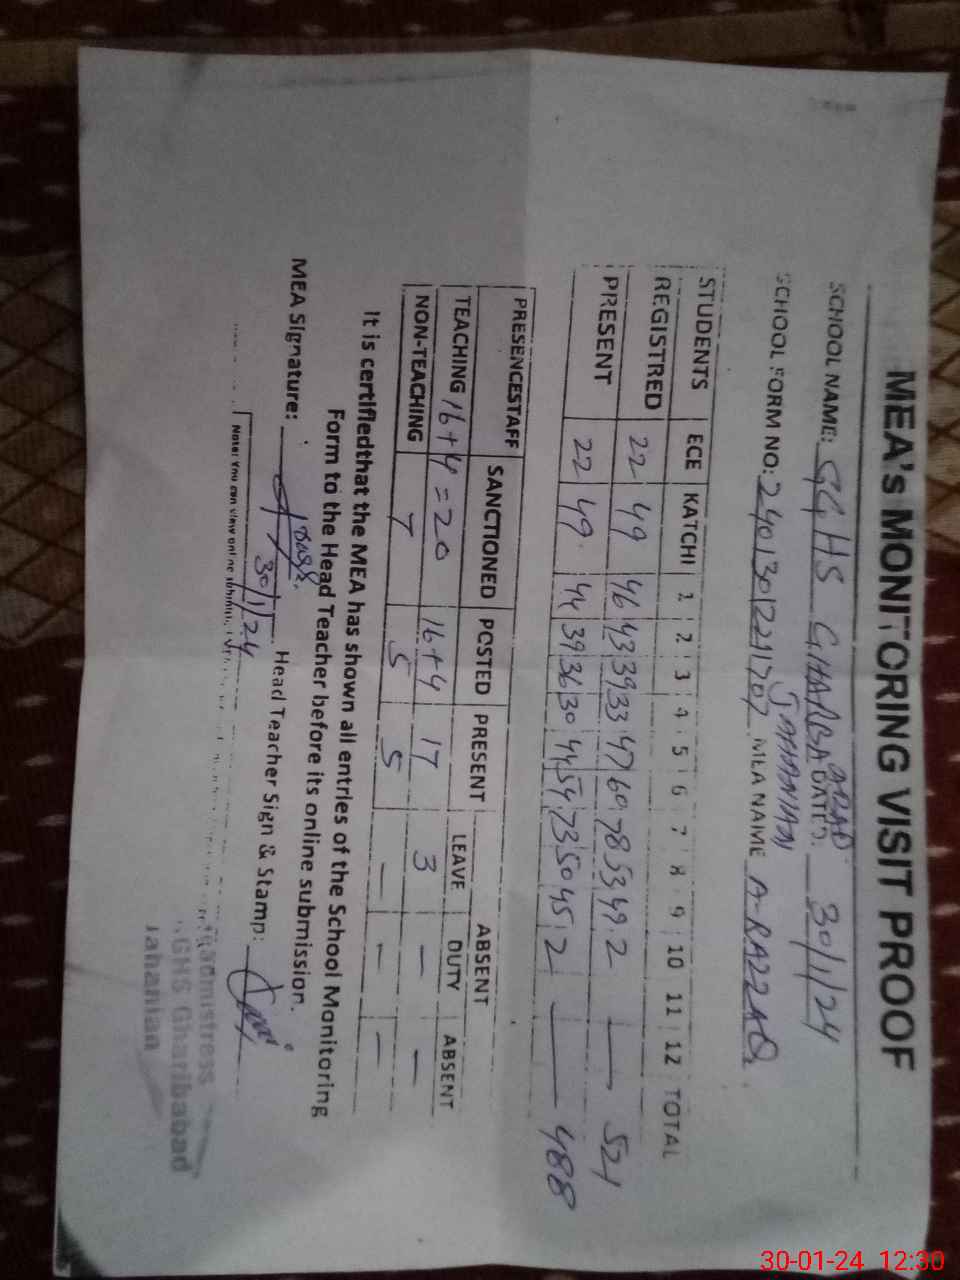 MEA's MONITORING VISIT PROOF
SCHOOL NAME: GGHS GHARIBABAD DATED: 30/1/24
JAHANIAN
SCHOOL FORM NO: MEA NAME A-RAZZAQ
STUDENTS ECE KATCHI 1 2 3 4 5 6 7 8 9 10 11 12 TOTAL
REGISTRED 22 49 46 43 39 33 47 60 78 53 49 2 — 521
PRESENT 22 49 44 39 36 30 44 54 73 50 45 2 — 488
PRESENCESTAFF SANCTIONED POSTED PRESENT ABSENT
LEAVE DUTY ABSENT
TEACHING 16+4=20 16+4 17 3 — —
NON-TEACHING 5 5 — — —
It is certifiedthat the MEA has shown all entries of the School Monitoring
Form to the Head Teacher before its online submission.
MEA Signature: Head Teacher Sign & Stamp:
30/1/24
Note: You can view online
Headmistress
GGHS Gharibabad
Jahanian
30-01-24 12:30